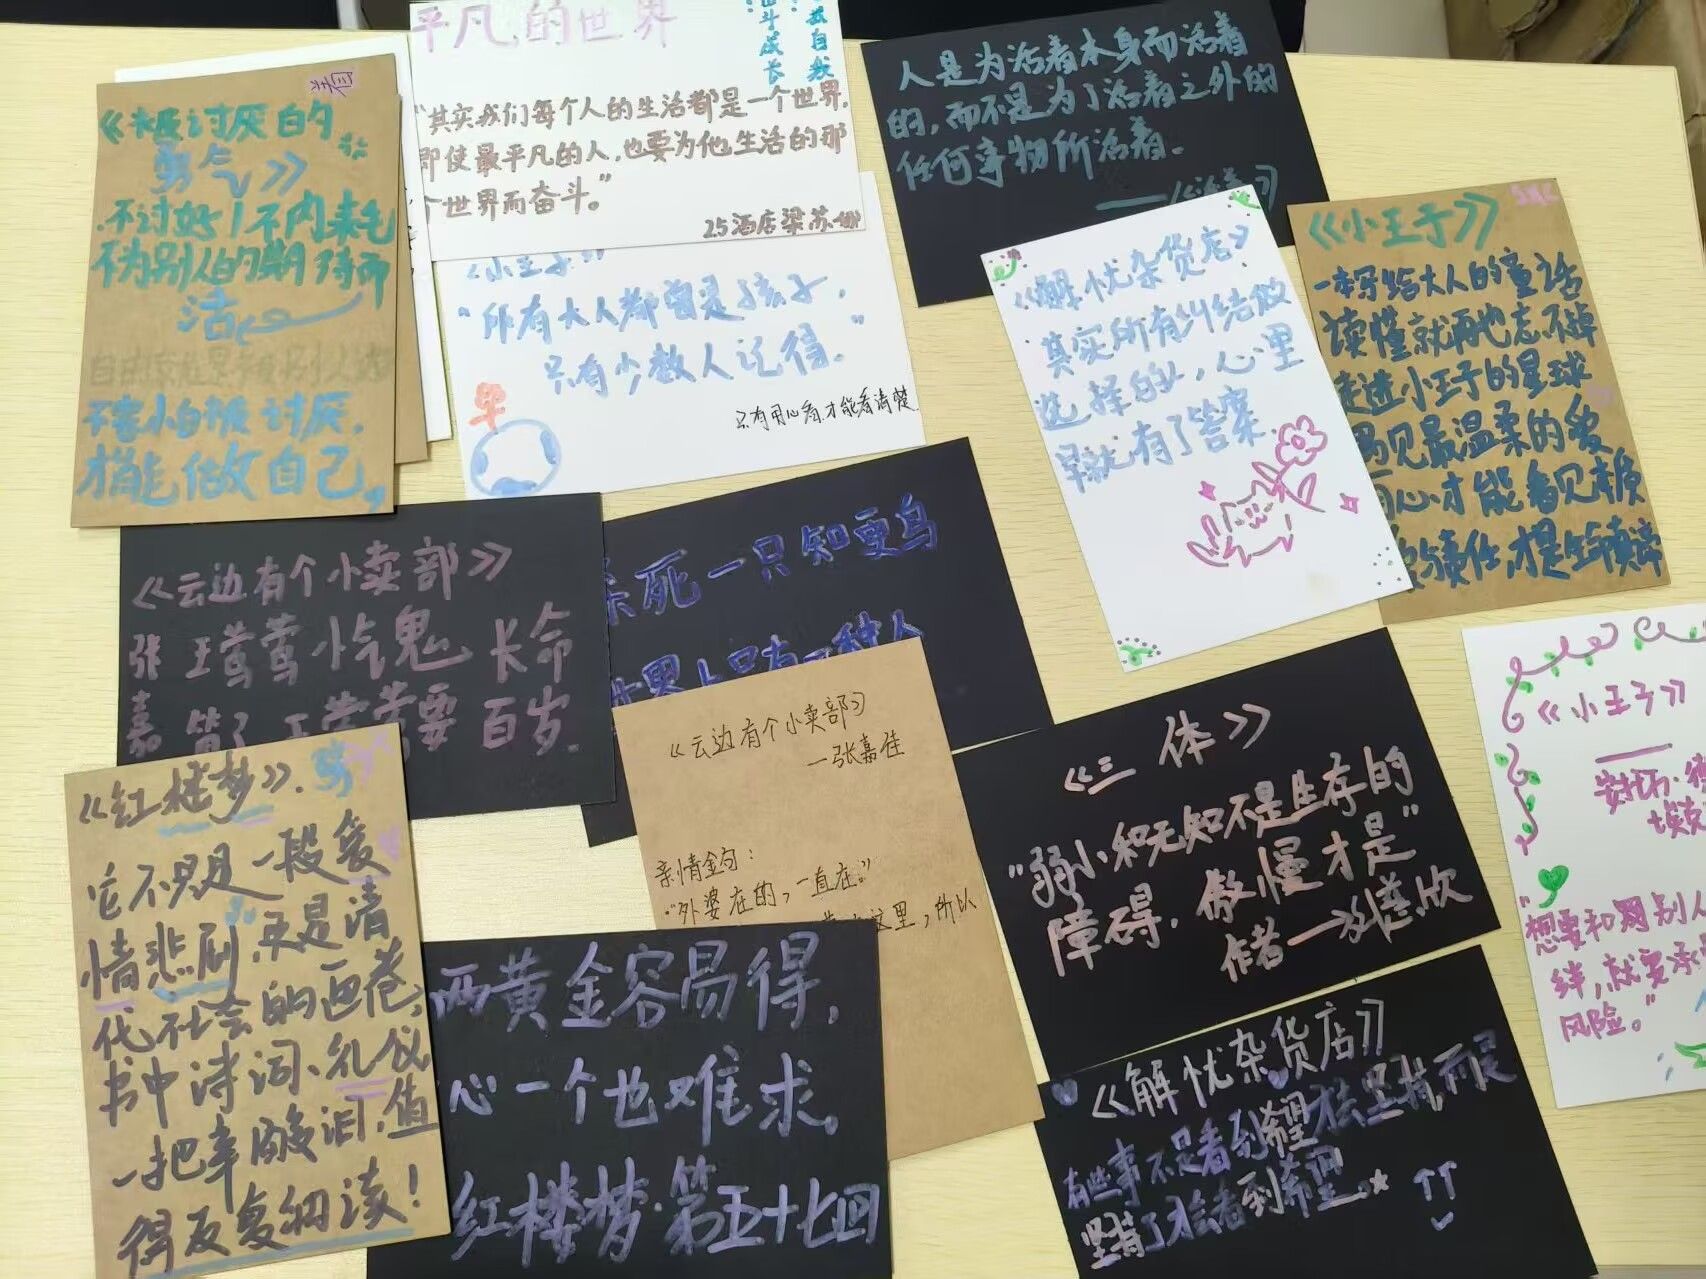 《被讨厌的
勇气》
不讨好！不内耗
不为别人的期待而
活
不害怕被讨厌，
才能做自己，
平凡的世界
奋斗成长
自我
“其实我们每个人的生活都是一个世界，
即使最平凡的人，也要为他生活的那
个世界而奋斗。”
25酒店梁苏娜
《小王子》
“所有大人都曾是孩子，
只有少数人记得。”
只有用心看才能看清楚
人是为活着本身而活着
的，而不是为了活着之外的
任何事物所活着。
——《活着》
《解忧杂货店》
其实所有纠结做
选择的人，心里
早就有了答案
《小王子》
一本写给大人的童话
读懂就再也忘不掉
走进小王子的星球
遇见最温柔的爱
用心才能看见本质
责任，才是生命真谛
《云边有个小卖部》
张嘉
王莺莺小气鬼 长命
百岁
杀死一只知更鸟
世界上只有一种人
《云边有个小卖部》
—张嘉佳
亲情金句：
“外婆在的，一直在。”
这里，所以
《三体》
“弱小和无知不是生存的
障碍，傲慢才是”
作者—刘慈欣
《小王子》
“想要和别人
绊，就要承
风险。”
《红楼梦》.
它不只是一段爱
情悲剧，更是清
代社会的画卷，
书中诗词、礼仪
一把辛酸泪，值
得反复细读！
两黄金容易得，
心一个也难求。
红楼梦·第五十七回
《解忧杂货店》
有些事不是看到希望才去坚持，而是
坚持了才会看到希望。